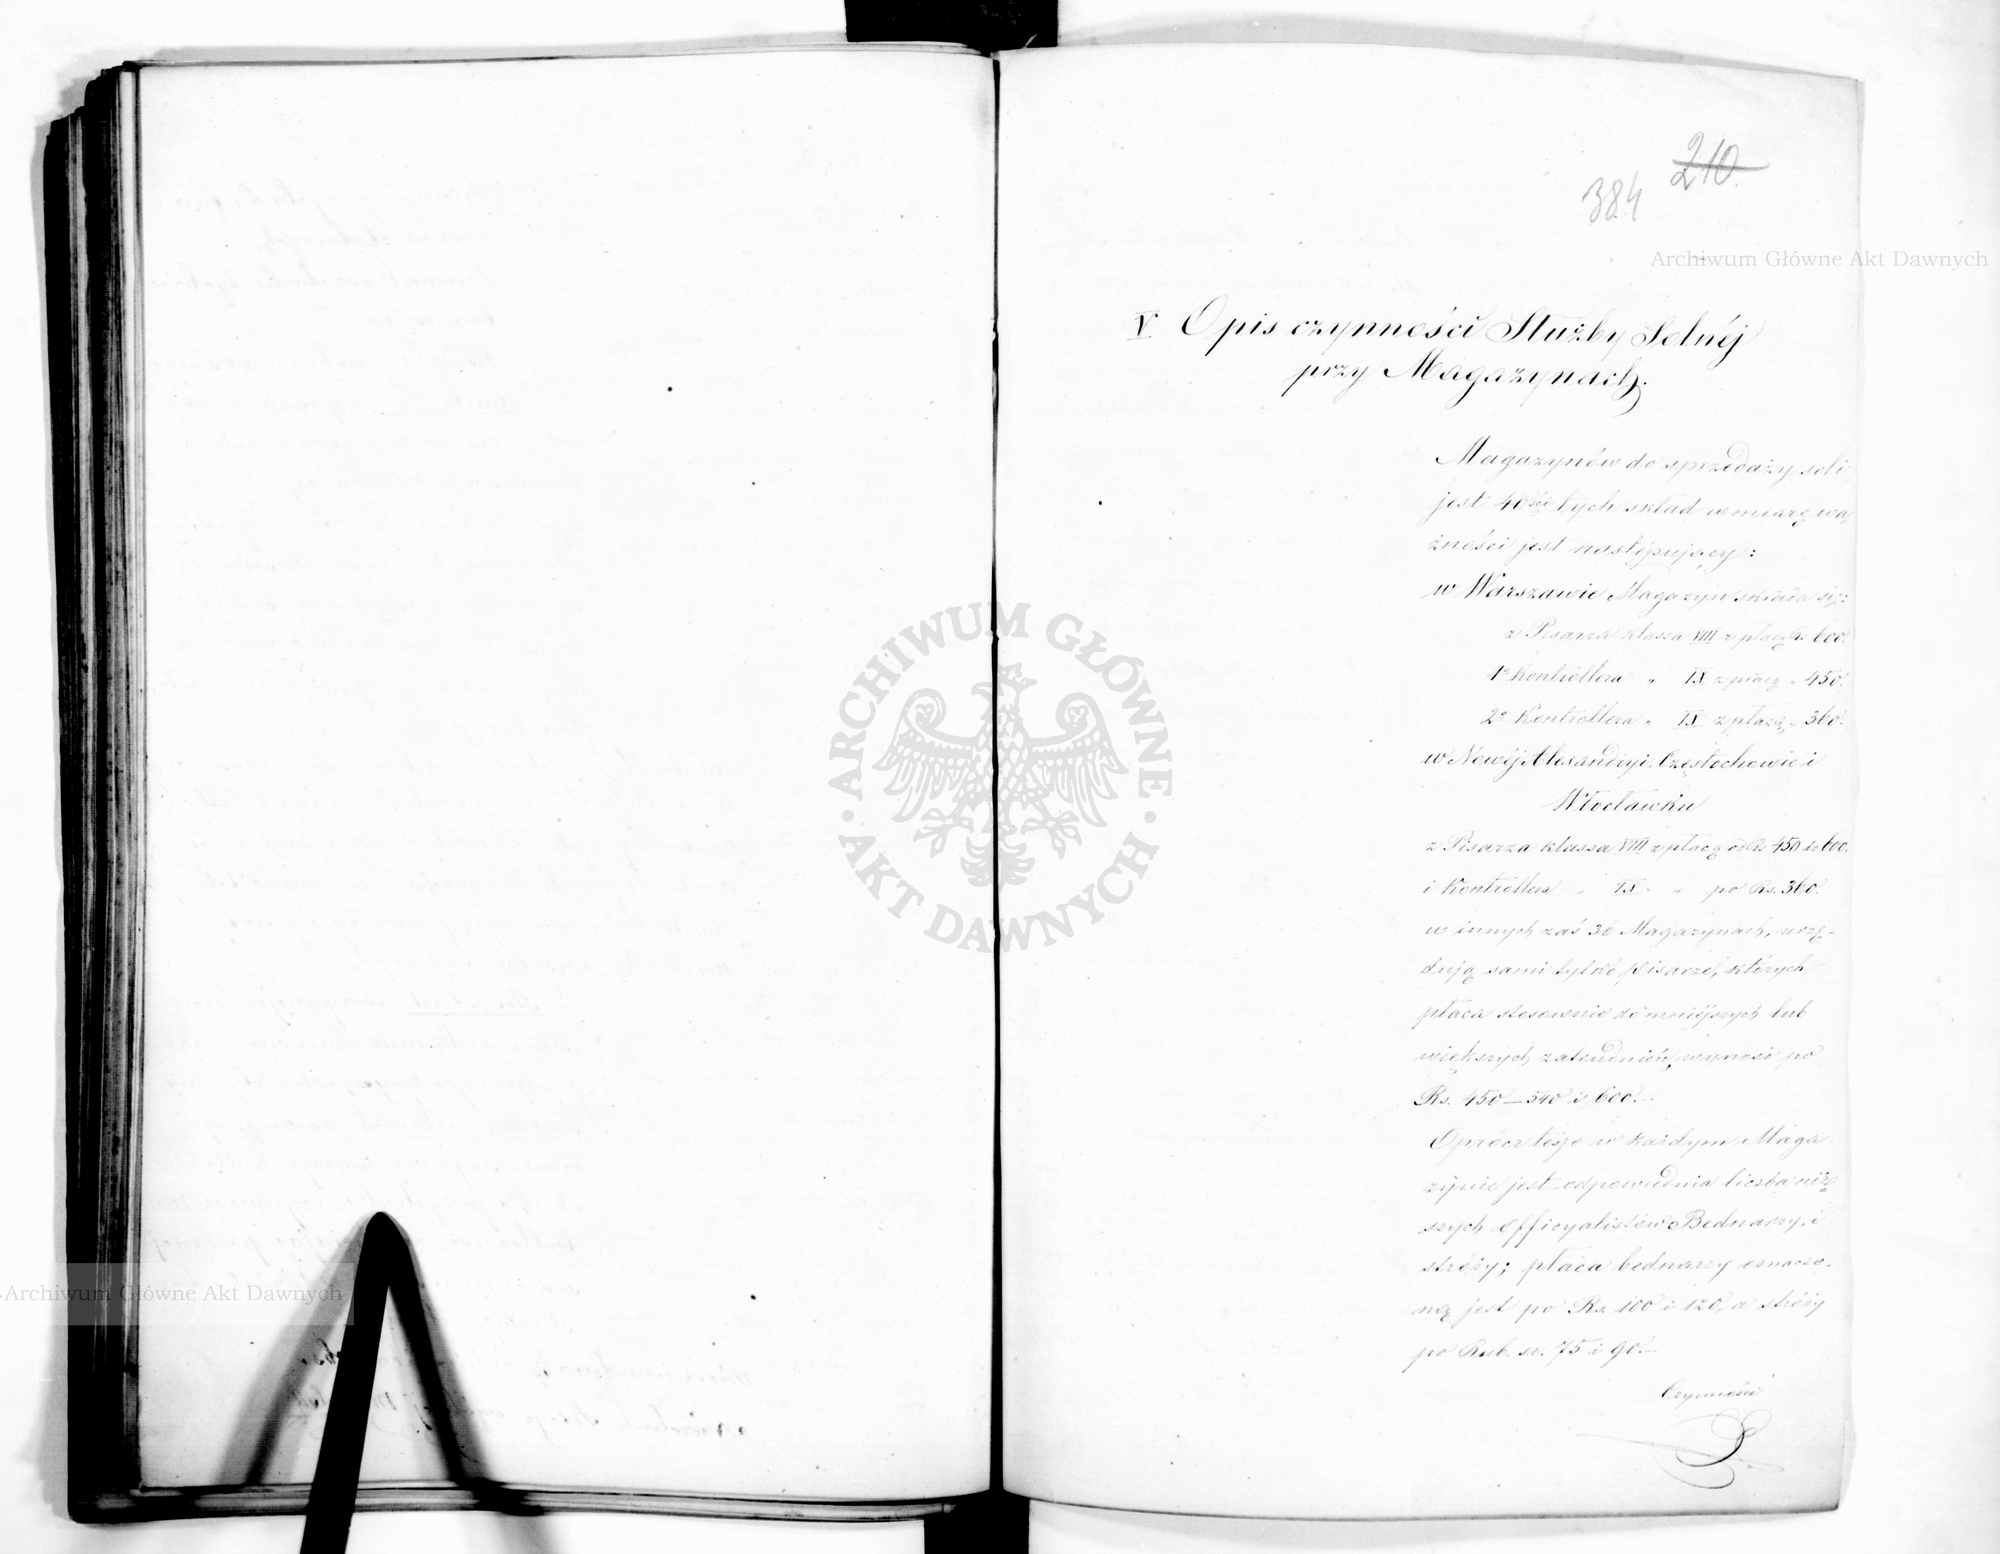 210.
384
Archiwum Główne Akt Dawnych
V Opis czynności Służby Solnéj
przy Magazynach.
Magazynów do sprzedaży soli
jest 40ści tych skład w miarę wa
żności jest następujący:
w Warszawie Magazyn składa się:
z Pisarza klassa VIII z płacą Rs 600.
1o Kontrollera „ IX z płacą „ 450.
2o Kontrollera „ IX z płacą „ 360.
w Nowéj Alexandryi, Częstochowie i
Włocławku
z Pisarza klassa VIII z płacą od Rs 450 do 600.
i Kontrollera „ IX „ po Rs. 360.
w innych zaś 36 Magazynach, urzę-
dują sami tylko pisarze, których
płaca stosownie do mniéjszych lub
większych zatrudnień, wynosi po
Rs. 450 – 540 i 600.–
Oprócz tego w każdym Maga
zynie jest odpowiednia liczba niż
szych officyalistów Bednarzy, i
stróży; płaca bednarzy oznaczo-
ną jest po Rs. 100 i 120, a stróży
po Rub. sr. 75 i 90.–
Czynności
ARCHIWUM GŁÓWNE
· AKT DAWNYCH ·
Archiwum Główne Akt Dawnych